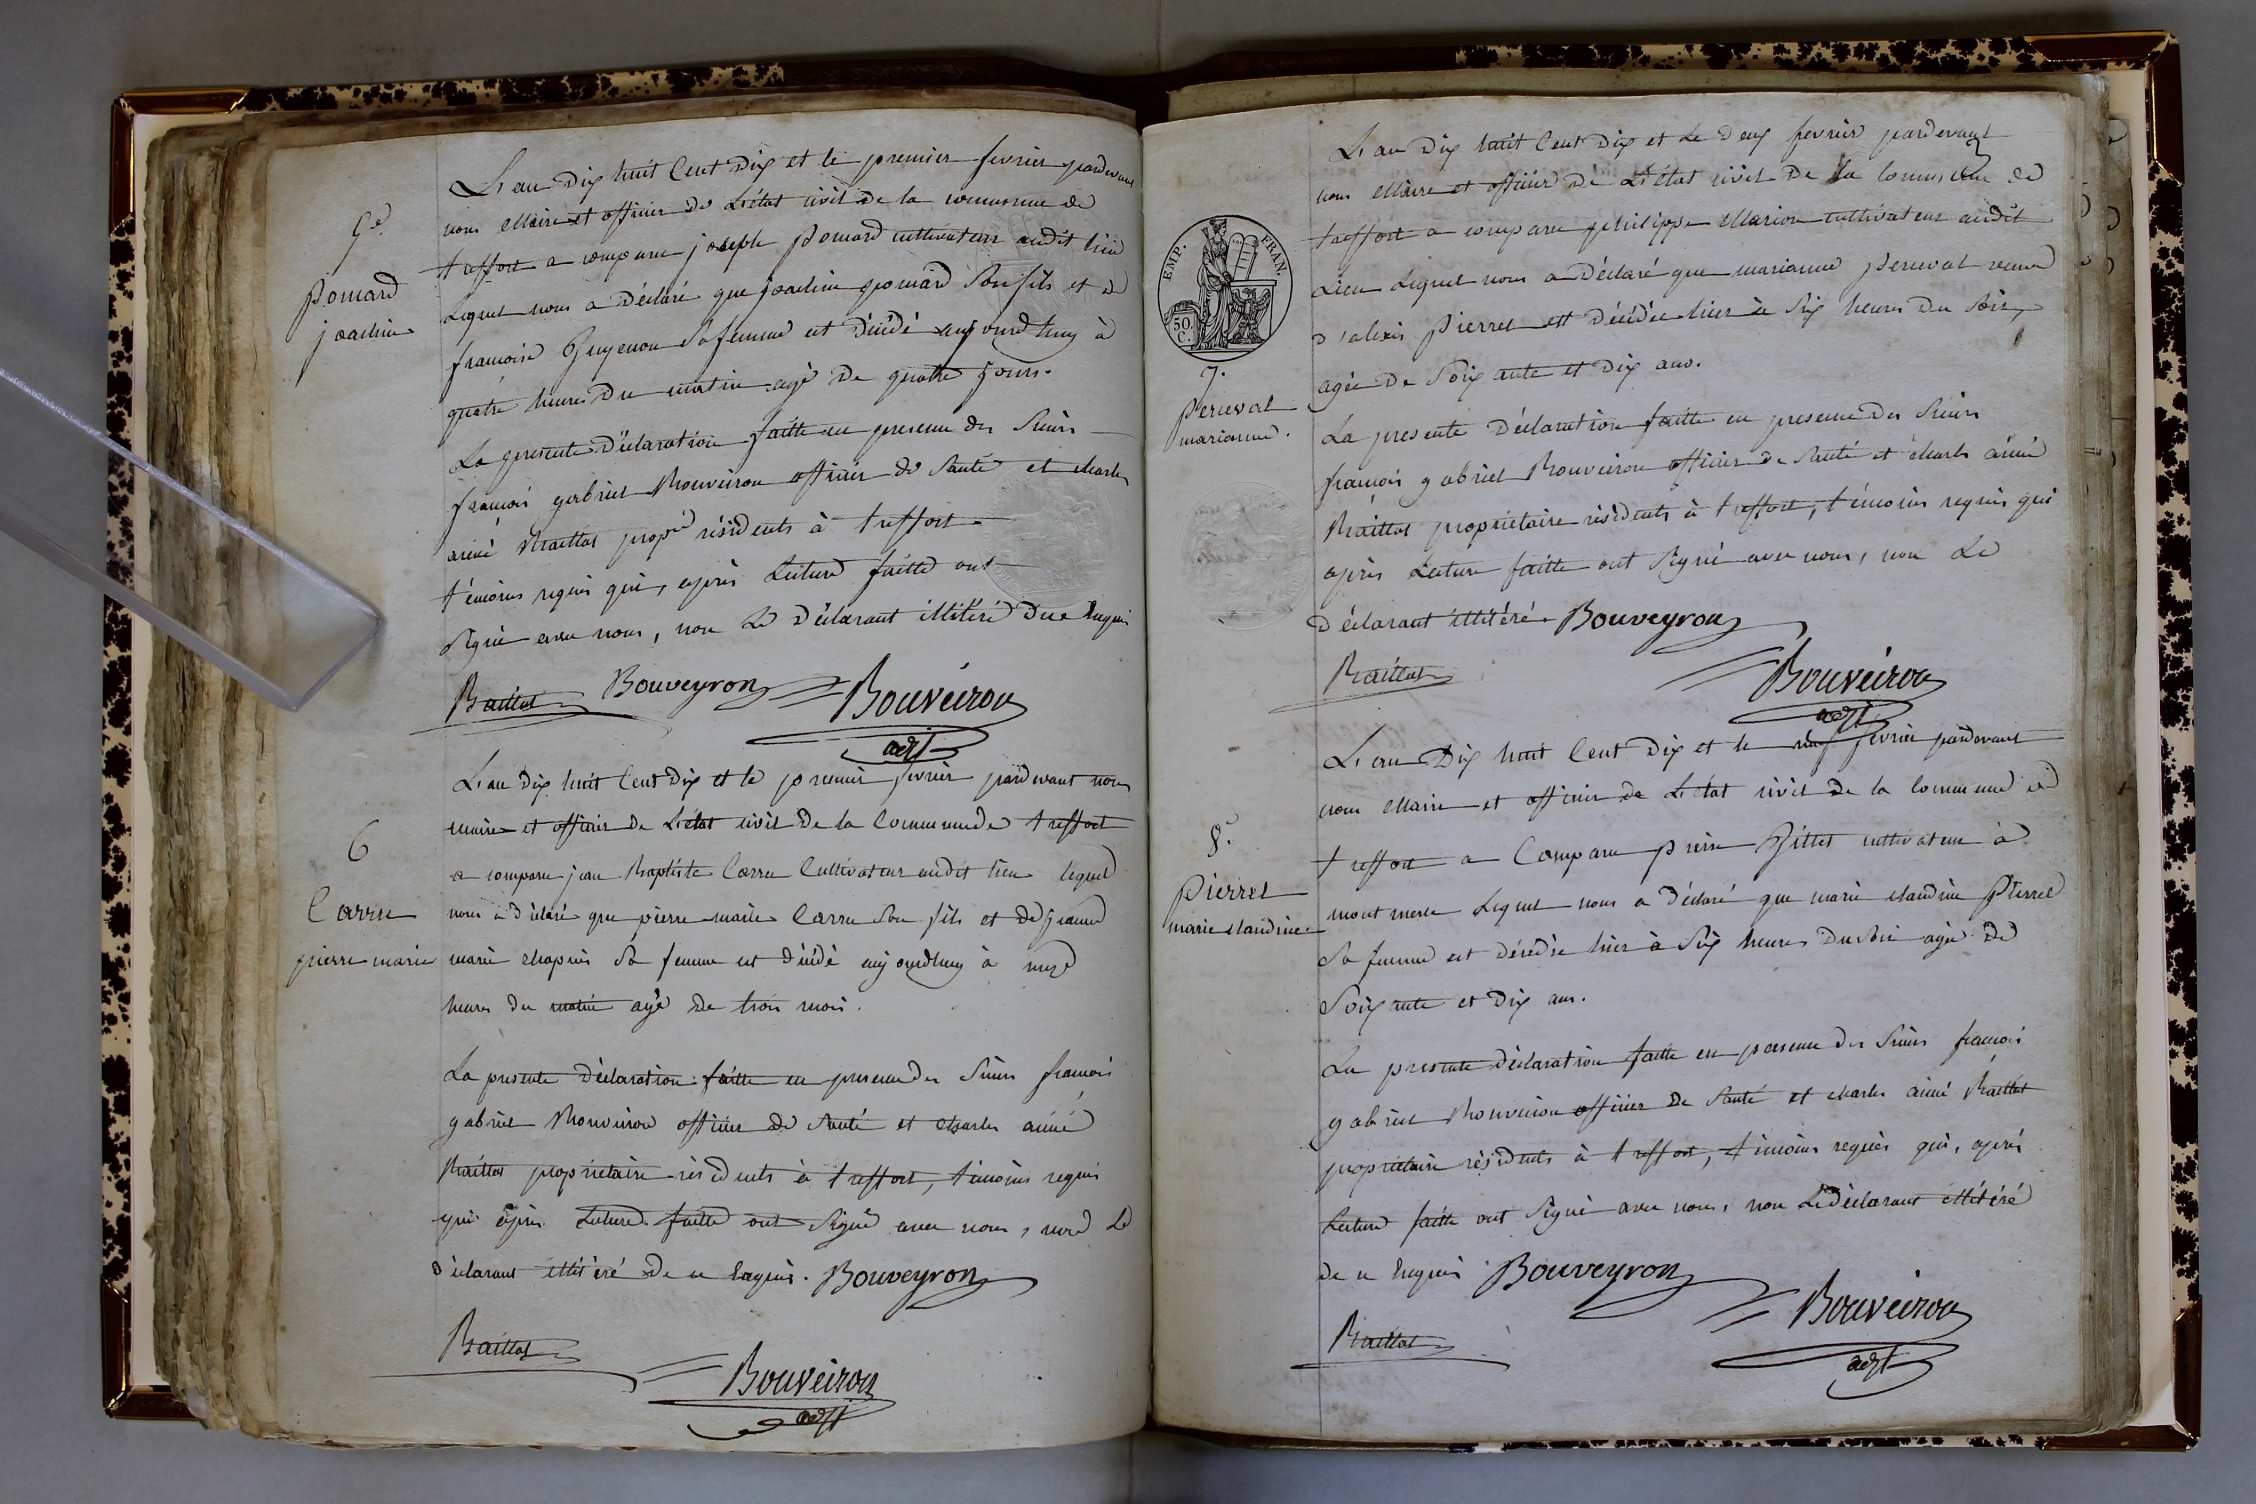 5e.
Pomard
joachin
L'an Dix huit Cent Dix et le premier fevrier pardevant
nous Maire et officier de L'état civil de la commune de
treffort a comparu joseph Pomard cultivateur audit lieu
Lequel nous a déclaré que joachin pomard Son fils et de
francoise Guyenon Sa femme est décédé aujourdhuy à
quatre heures Du matin agé De quatre jours.
La presente Déclaration faitte en presence des Sieurs
francois gabriel Bouveiron officier de Santé et charles
aimé Raillat propre résidents à treffort
témoins requis qui, après Lecture faitte ont
Signé avec nous, non Le Déclarant illitéré De ce Enquis
Raillat Bouveyron Bouveiron
adjt
6
Carru
pierre marie
L'an Dix huit Cent Dix et le premier fevrier pardevant nous
maire et officier de L'état civil De la Commune de treffort
a comparu jean Baptiste Carru Cultivateur audit lieu lequel
nous a déclaré que pierre marie Carru Son fils et de jeanne
marie chapuis Sa femme est décédé aujourdhuy à onze
heures du matin agé de trois mois.
La presente Déclaration faitte en presence des Sieurs francois
gabriel Bouveiron officier de Santé et Charles aimé
Raillat propriétaire résidents à treffort, témoins requis
qui après Lecture faitte ont Signé avec nous, non Le
déclarant illitéré de ce Enquis. Bouveyron
Raillat
Bouveiron
adjt
EMP. FRAN.
50.
C.
7.
Perceval
marianne.
L'an Dix huit Cent Dix et Le Deux fevrier pardevant
nous Maire et officier de L'état civil De la Commune de
treffort a comparu philippe Marion cultivateur audit
Lieu Lequel nous a Déclaré que marianne Perceval veuve
d'alexis Pierrel est Décédée hier à Six heures Du Soir,
agée De Soixante et Dix ans.
La presente Déclaration faitte en presence des Sieurs
francois gabriel Bouveiron officier de Santé et charles aimé
Raillat propriétaire résidents à treffort, témoins requis qui
après Lecture faitte ont Signé avec nous, non Le
déclarant illitéré. Bouveyron
Raillat
Bouveiron
adjt
8.
Pierrel
marie claudine
L'an Dix huit Cent Dix et le fevrier pardevant
nous Maire et officier de L'état civil de la Commune de
treffort a Comparu pierre Gillet cultivateur à
montmerle Lequel nous a déclaré que marie claudine Pierrel
Sa femme est décédée hier à Six heures Du Soir agée de
Soixante et Dix ans.
La presente déclaration faitte en presence des Sieurs francois
gabriel Bouveiron officier De Santé et charles aimé Raillat
propriétaire résidents à treffort, témoins requis qui, après
Lecture faitte ont Signé avec nous, non Le déclarant illitéré
de ce Enquis Bouveyron
Raillat
Bouveiron
adjt